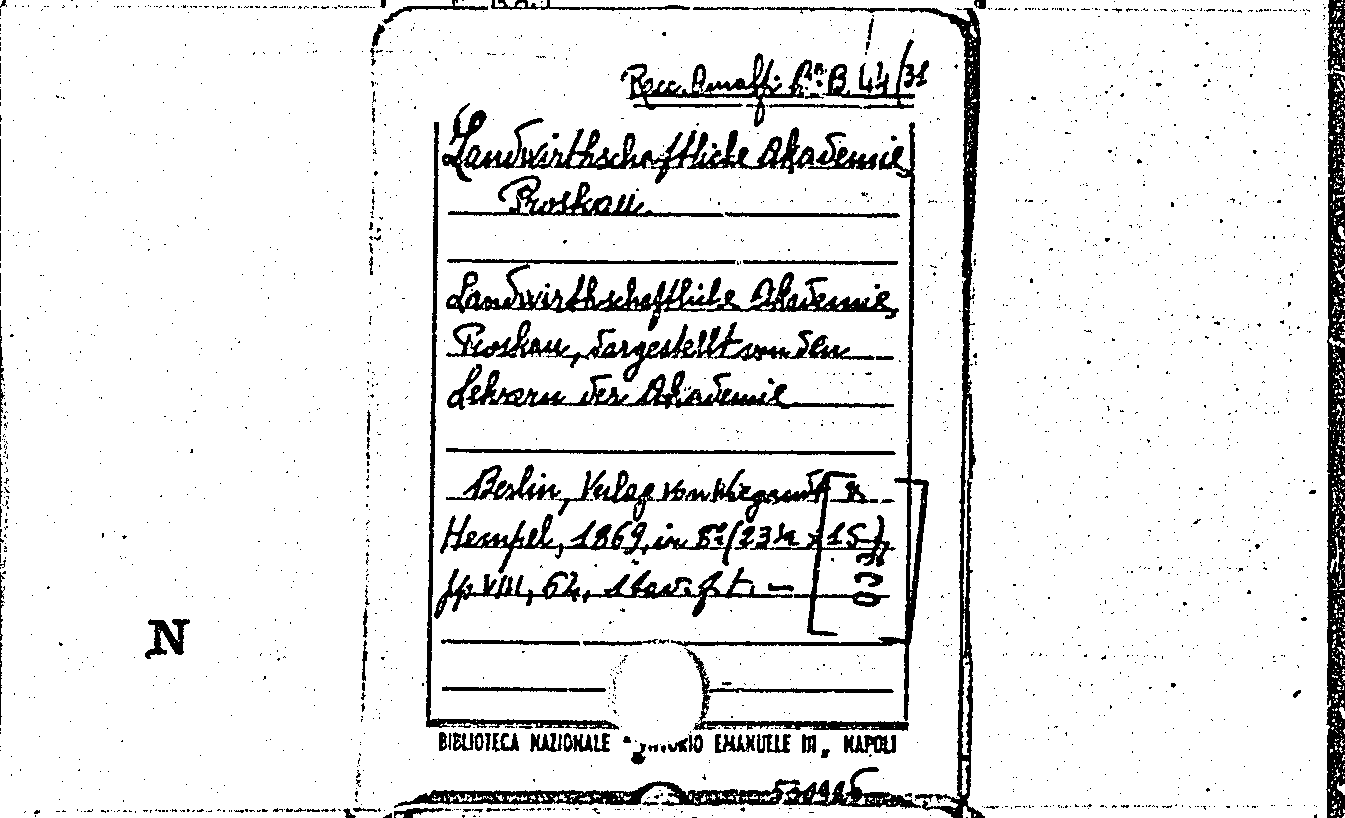 Racc. Amalfi B. 44/31
Landwirthschaftliche Akademie,
Proskau.
Landwirthschaftliche Akademie,
Proskau, dargestellt von den
Lehrern der Akademie
Berlin, Verlag von Wiegandt &
Hempel, 1869, in 8° (23½ x 15),
pp VIII, 64, 1 tav. f. t. —
N
BIBLIOTECA NAZIONALE "VITTORIO EMANUELE III", NAPOLI